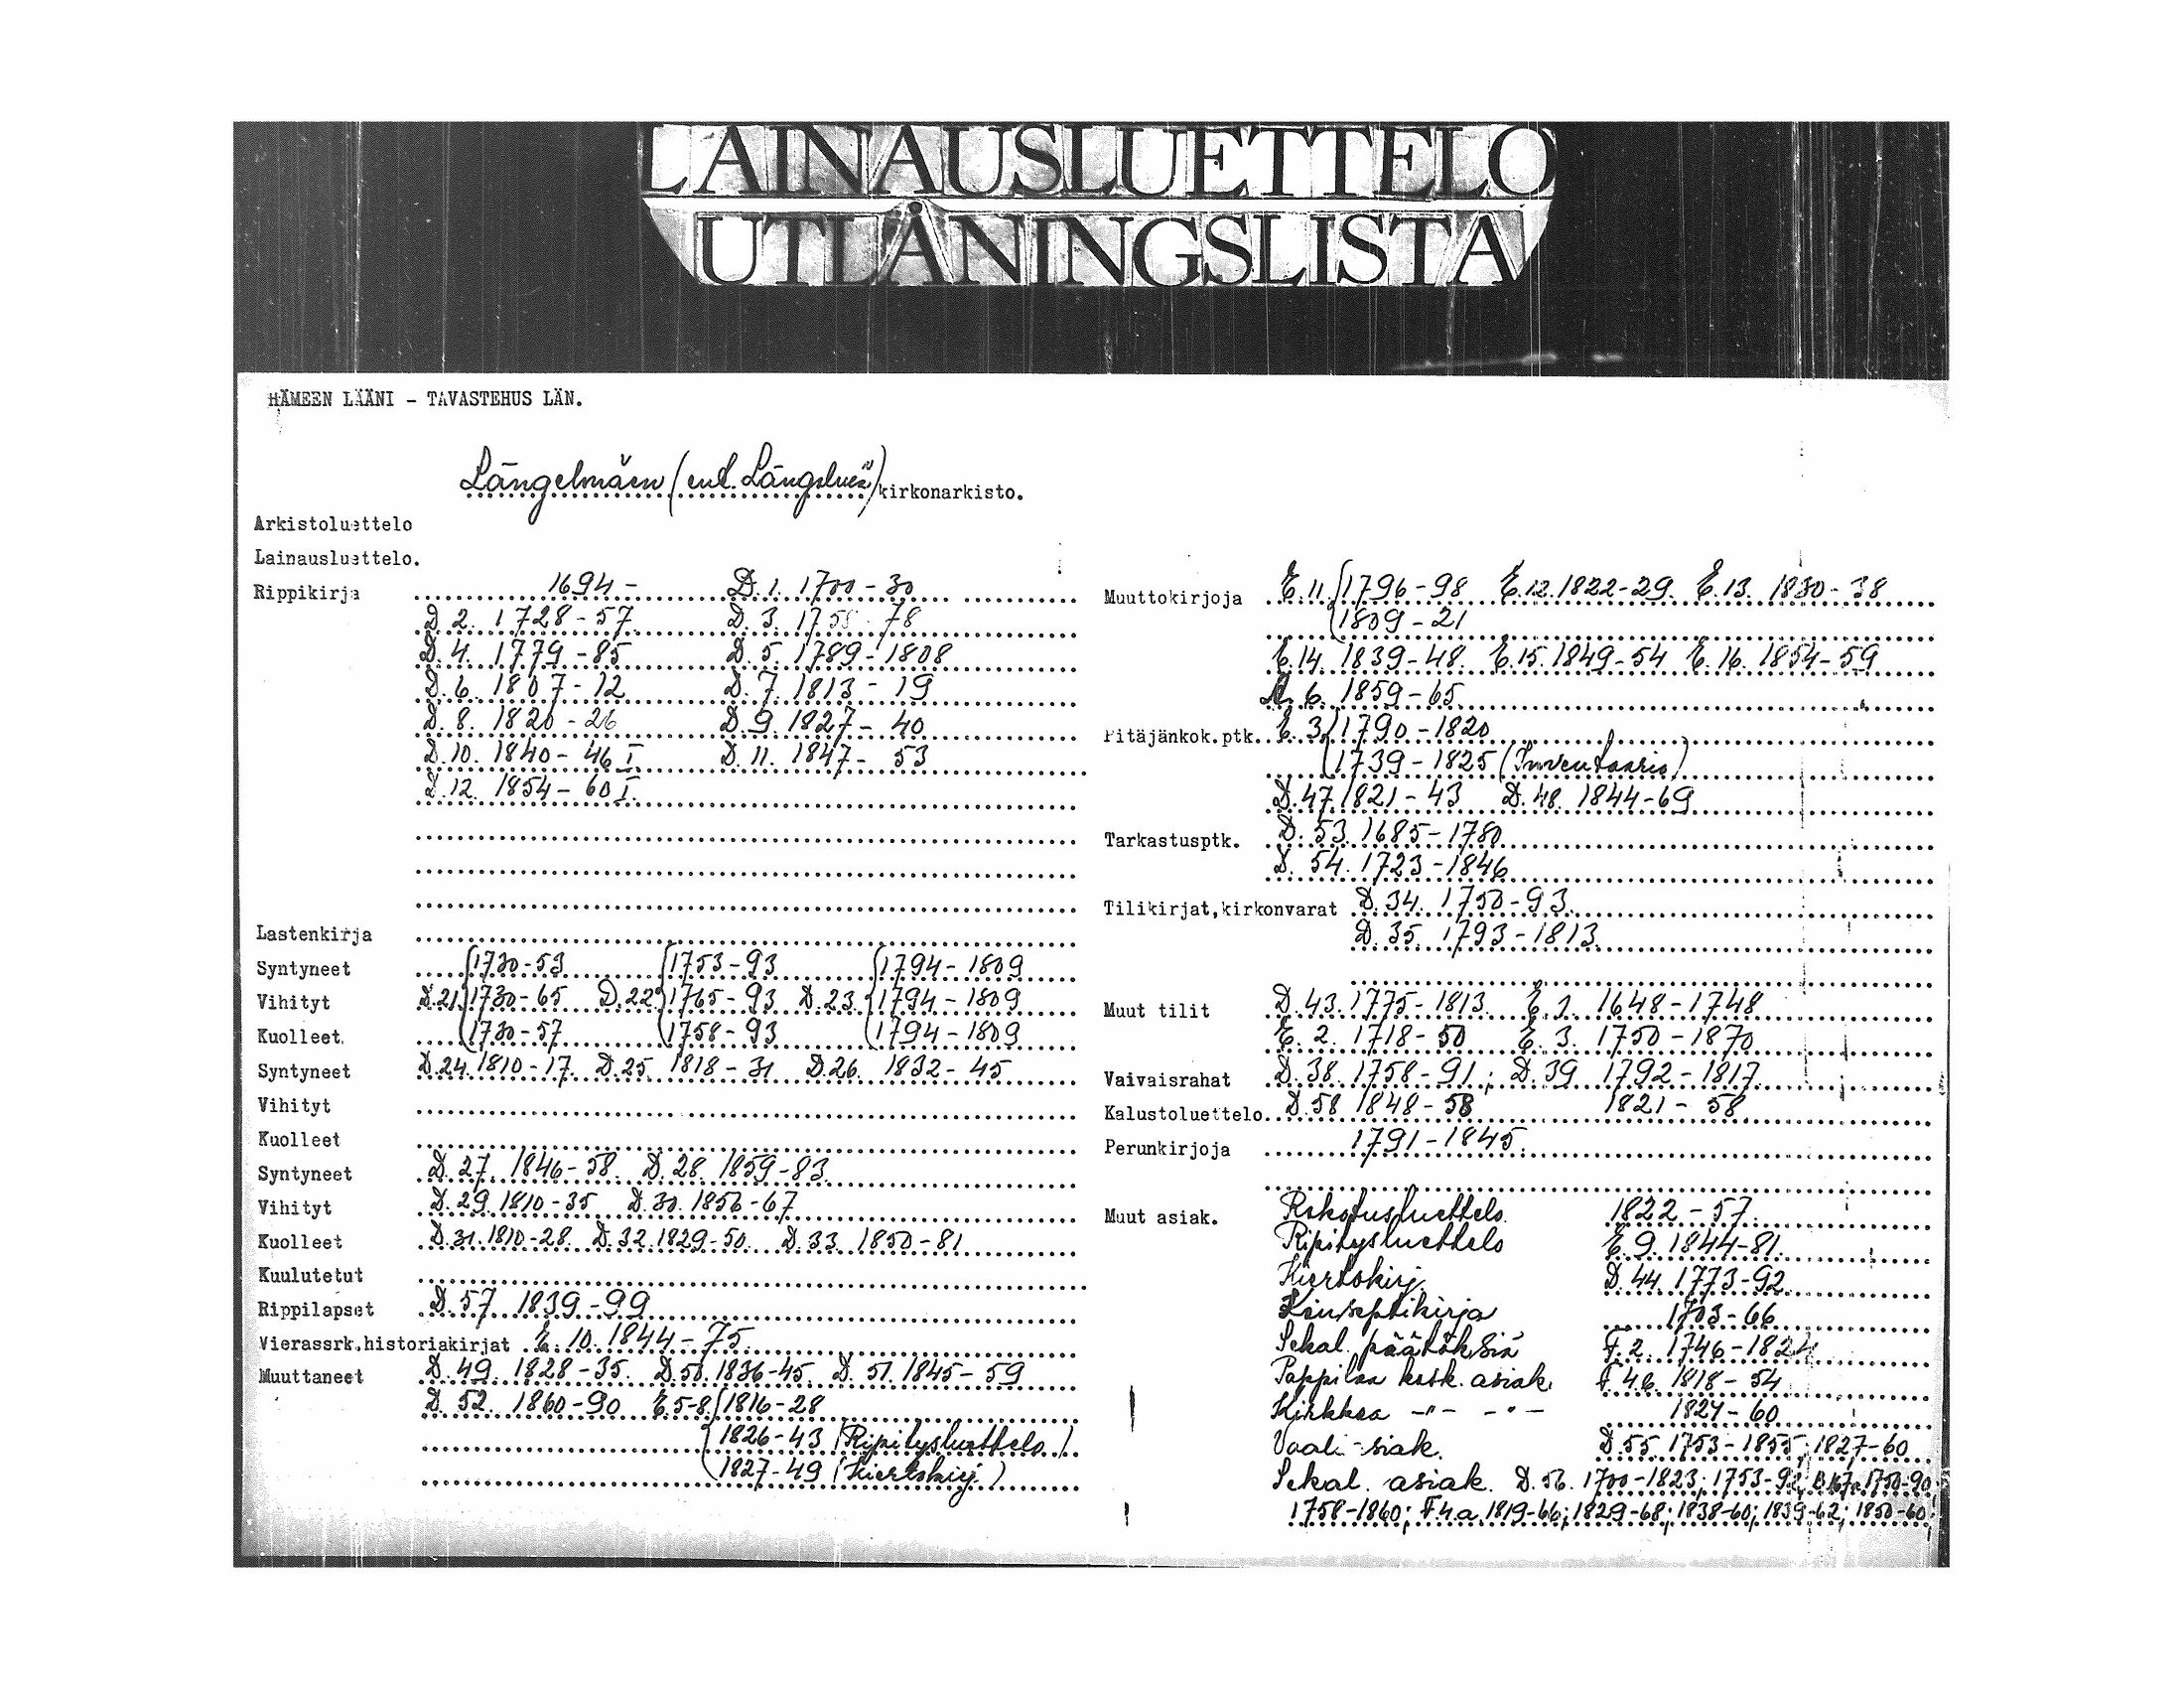 LAINAUSLUETTELO
UTLÅNINGSLISTA
HÄMEEN LÄÄNI - TAVASTEHUS LÄN.
Längelmäen (ent. Längelmä) kirkonarkisto.
Arkistoluettelo
Lainausluettelo.
Rippikirja 1694 - D.1. 1700-30
D.2. 1728-57 D.3. 1758-78
D.4. 1779-85 D.5. 1789-1808
D.6. 1807-12 D.7. 1813-19
D.8. 1820-26 D.9. 1827-40
D.10. 1840-46 I D.11. 1847-53
D.12. 1854-60 I.
Lastenkirja
Syntyneet 1730-53 1753-93 1794-1809
Vihityt D.21. 1730-65 D.22. 1765-93 D.23. 1794-1809
Kuolleet. 1730-57 1758-93 1794-1809
Syntyneet D.24. 1810-17. D.25. 1818-31 D.26. 1832-45
Vihityt
Kuolleet
Syntyneet D.27. 1846-58. D.28. 1859-83.
Vihityt D.29. 1810-35 D.30. 1856-67
Kuolleet D.31. 1810-28. D.32. 1829-50. D.33. 1850-81
Kuulutetut
Rippilapset D.57. 1839-99
Vierassrk.historiakirjat E.10. 1844-75.
Muuttaneet D.49. 1828-35. D.50. 1836-45. D.51. 1845-59
D.52. 1860-90 E.5-8. 1816-28
1826-43 (Ripitysluettelo.)
1827-49 (Kiertokirj.)
Muuttokirjoja E.11. 1796-98 E.12. 1822-29. E.13. 1830-38
1809-21
E.14. 1839-48. E.15. 1849-54 E.16. 1854-59
6. 1859-65.
Pitäjänkok.ptk. E.3. 1790-1820
1739-1825 (Inventaario)
D.47. 1821-43 D.48. 1844-69
Tarkastusptk. D.53. 1685-1780
D.54. 1723-1846
Tilikirjat,kirkonvarat D.34. 1750-93.
D.35. 1793-1813.
Muut tilit D.43. 1775-1813. E.1. 1648-1748
E.2. 1718-50 E.3. 1750-1870
Vaivaisrahat D.38. 1758-91; D.39 1792-1817.
Kalustoluettelo D.58 1848-58 1821-58
Perunkirjoja 1791-1845.
Muut asiak. Rokotusluettelo 1822-57.
Ripitysluettelo E.9. 1844-81.
Kiertokirj. D.44. 1773-92
Konseptikirja 1703-66
Sekal. päätöksiä F.2. 1746-1824
Pappilaa kosk. asiak. F.4b. 1818-54
Kirkkoa -"- -"- 1824-60
Vaali-siak. D.55. 1753-1855; 1827-60
Sekal. asiak. D.56. 1700-1823; 1753-92; 1750-90;
1758-1860; F.4.a. 1819-66; 1829-68; 1838-60; 1839-62; 1850-60;